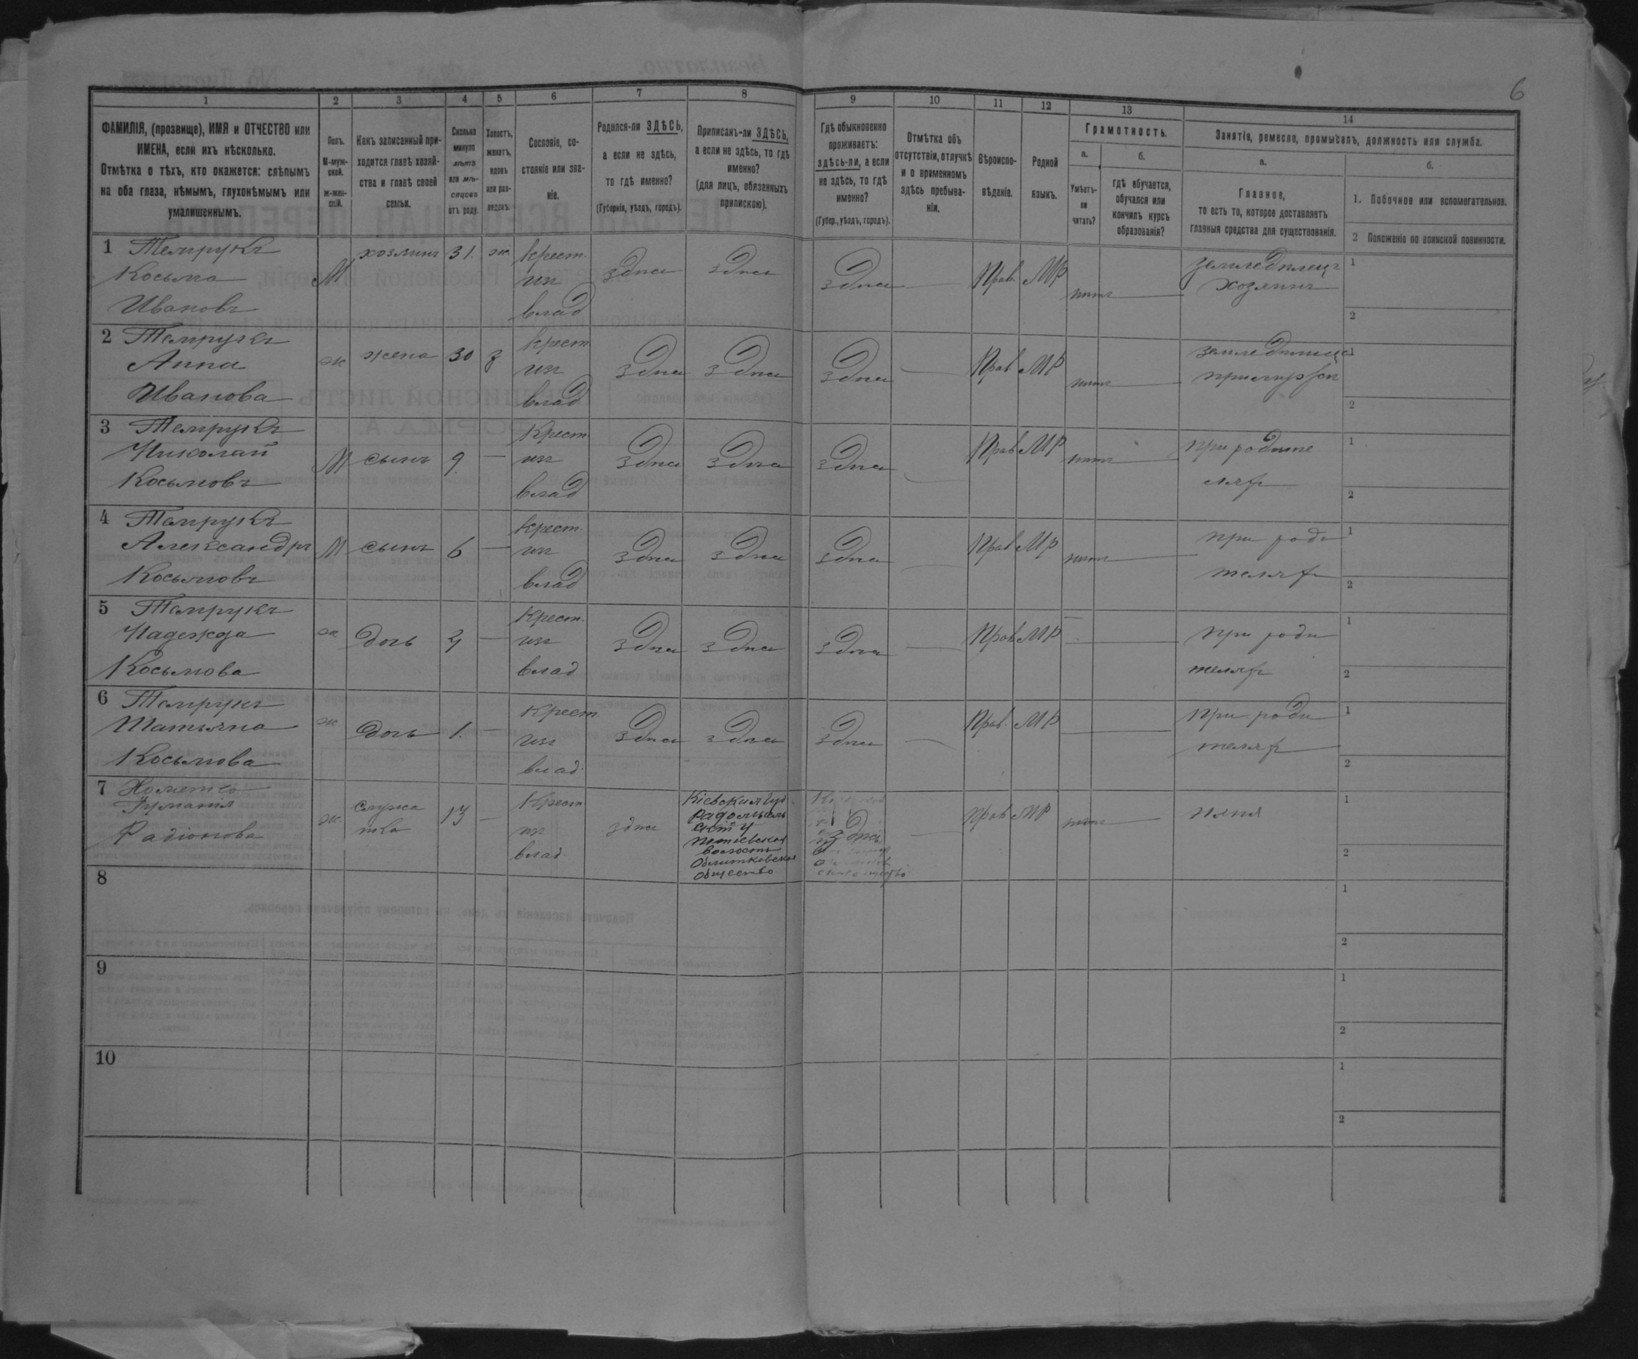 6
1 2 3 4 5 6 7 8 9 10 11 12 13 14
ФАМИЛІЯ, (прозвище), ИМЯ и ОТЧЕСТВО или
ИМЕНА, если ихъ нѣсколько.
Отмѣтка о тѣхъ, кто окажется: слѣпымъ
на оба глаза, нѣмымъ, глухонѣмымъ или
умалишеннымъ.
Полъ.
М-муж-
ской.
Ж-жен-
скій.
Какъ записанный при-
ходится главѣ хозяй-
ства и главѣ своей
семьи.
Сколько
минуло
лѣтъ
или мѣ-
сяцевъ
отъ роду.
Холостъ,
женатъ,
вдовъ
или раз-
веденъ.
Сословіе, со-
стояніе или зва-
ніе.
Родился-ли ЗДѢСЬ,
а если не здѣсь,
то гдѣ именно?
(Губернія, уѣздъ, городъ).
Приписанъ-ли ЗДѢСЬ,
а если не здѣсь, то гдѣ
именно?
(для лицъ, обязанныхъ
припискою).
Гдѣ обыкновенно
проживаетъ:
здѣсь-ли, а если
не здѣсь, то гдѣ
именно?
(Губер., уѣздъ, городъ).
Отмѣтка объ
отсутствіи, отлучкѣ
и о временномъ
здѣсь пребыва-
ніи.
Вѣроиспо-
вѣданіе.
Родной
языкъ.
Грамотность.
а.
Умѣетъ-
ли
читать?
б.
гдѣ обучается,
обучался или
кончилъ курсъ
образованія?
Занятія, ремесло, промыселъ, должность или служба.
а.
Главное,
то есть то, которое доставляетъ
главныя средства для существованія.
б.
1. Побочное или вспомогательное.
2 Положеніе по воинской повинности.
1 Темрукъ
Косьма
Ивановъ
М
хозяинъ 31. ж.
крест.
ип
влад
здѣсь здѣсь здѣсь
Прав МР
нѣтъ
земледѣлецъ
хозяинъ
1
2
2 Темрукъ
Анна
Иванова
ж жена 30 з
крест
ип
влад
здѣсь здѣсь здѣсь
Прав МР
нѣтъ
1
2
3 Темрукъ
Николай
Косьмовъ
М сынъ 9
Крест
ип
влад
здѣсь здѣсь здѣсь
Прав МР
нѣтъ
при родите
ляхъ
1
2
4 Темрукъ
Александръ
Косьмовъ
М сынъ 6
крест.
ип
влад
здѣсь здѣсь здѣсь
Прав МР
нѣтъ
при роди
теляхъ
1
2
5 Темрукъ
Надежда
Косьмова
ж дочь 3
Крест.
ип
влад
здѣсь здѣсь здѣсь
Прав МР
при роди
теляхъ
1
2
6 Темрукъ
Татьяна
Косьмова
ж дочь 1.
Крест
ип
влад.
здѣсь здѣсь здѣсь
Прав МР
при роди
теляхъ
1
2
7
Радіонова
ж. служа
тва 13
Крест
ип
влад
здѣсь
Кіевскія Губ.
волость
Общество
здѣсь
Прав МР
нѣтъ
няня
1
2
8
1
2
9
1
2
10
1
2